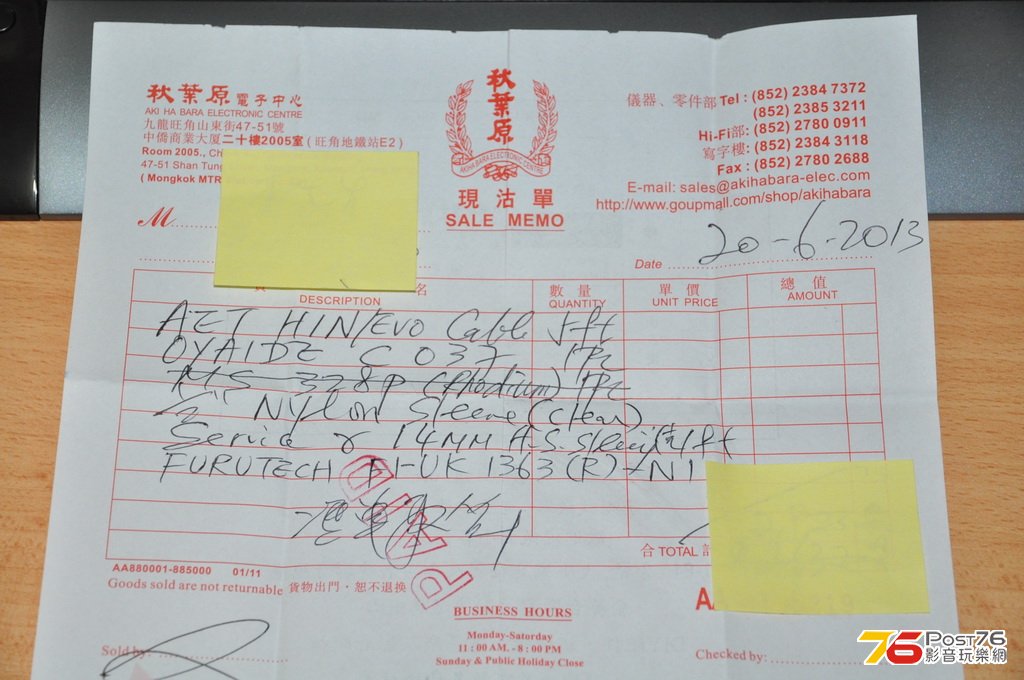 秋葉原電子中心
AKI HA BARA ELECTRONIC CENTRE
九龍旺角山東街47-51號
中僑商業大厦二十樓2005室(旺角地鐵站E2)
Room 2005., Ch
47-51 Shan Tung
( Mongkok MTR
秋葉原
AKIHA BARA ELECTRONIC CENTRE
現沽單
SALE MEMO
儀器、零件部 Tel : (852) 2384 7372
(852) 2385 3211
Hi-Fi部: (852) 2780 0911
寫字樓: (852) 2384 3118
Fax : (852) 2780 2688
E-mail: sales@akihabara-elec.com
http://www.goupmall.com/shop/akihabara
M
Date 20-6-2013
名 數量 單價 總值
DESCRIPTION QUANTITY UNIT PRICE AMOUNT
AET HIN/EVO Cable 5ft
OYAIDE C 037 1Pc
328P (Rhodium) 1Pc
Nylon Sleeve (clear)
Service 14MM H.S. 1ft
FURUTECH FI-UK 1363 (R)-N1
PAID
合 TOTAL 計
AA880001-885000 01/11
Goods sold are not returnable 貨物出門，恕不退換
BUSINESS HOURS
Monday-Saturday
11 : 00 AM. - 8 : 00 PM
Sunday & Public Holiday Close
Sold by:
Checked by:
76 Post76
影音玩樂網